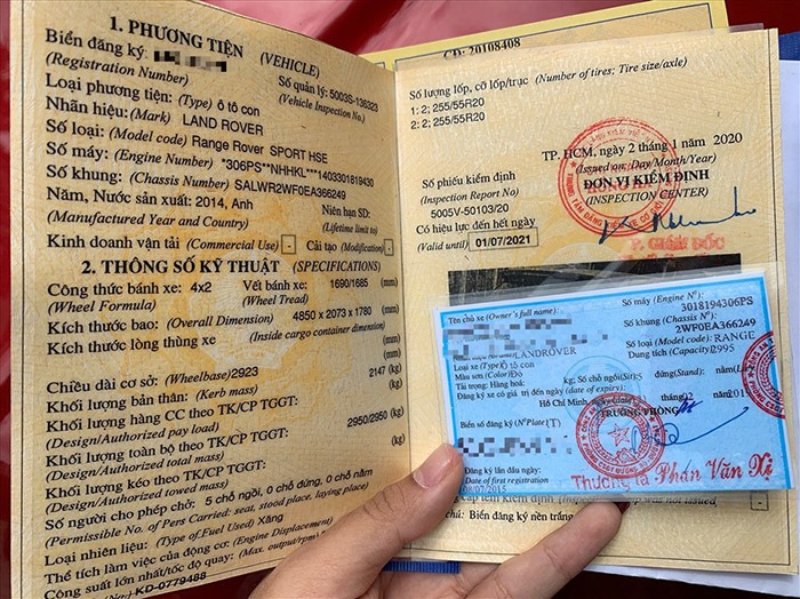 1. PHƯƠNG TIỆN (VEHICLE)
Biển đăng ký:
(Registration Number)
Số quản lý: 5003S-136323
(Vehicle Inspection No.)
Loại phương tiện: (Type) ô tô con
Nhãn hiệu: (Mark) LAND ROVER
Số loại: (Model code) Range Rover SPORT HSE
Số máy: (Engine Number) *306PS**NHHKL***1403301819430
Số khung: (Chassis Number) SALWR2WF0EA366249
Năm, Nước sản xuất: 2014, Anh
Niên hạn SD:
(Manufactured Year and Country)
(Lifetime limit to)
Kinh doanh vận tải (Commercial Use) - Cải tạo (Modification) -
2. THÔNG SỐ KỸ THUẬT (SPECIFICATIONS)
Công thức bánh xe: 4x2 Vết bánh xe: 1690/1685 (mm)
(Wheel Formula) (Wheel Tread)
Kích thước bao: (Overall Dimension) 4850 x 2073 x 1780 (mm)
Kích thước lòng thùng xe (Inside cargo container dimension)
(mm)
Chiều dài cơ sở: (Wheelbase) 2923 (mm)
Khối lượng bản thân: (Kerb mass) 2147 (kg)
Khối lượng hàng CC theo TK/CP TGGT: (kg)
(Design/Authorized pay load)
Khối lượng toàn bộ theo TK/CP TGGT: 2950/2950 (kg)
(Design/Authorized total mass)
Khối lượng kéo theo TK/CP TGGT: (kg)
(Design/Authorized towed mass)
Số người cho phép chở: 5 chỗ ngồi, 0 chỗ đứng, 0 chỗ nằm
(Permissible No. of Pers Carried: seat, stood place, laying place)
Loại nhiên liệu: (Type of Fuel Used) Xăng
Thể tích làm việc của động cơ: (Engine Displacement)
Công suất lớn nhất/tốc độ quay: (Max. output/rpm)
KD-0779488
CD: 20108408
Số lượng lốp, cỡ lốp/trục (Number of tires; Tire size/axle)
1: 2; 255/55R20
2: 2; 255/55R20
TP. HCM, ngày 2 tháng 1 năm 2020
(Issued on: Day/Month/Year)
Số phiếu kiểm định
ĐƠN VỊ KIỂM ĐỊNH
(Inspection Report No)
(INSPECTION CENTER)
5005V-50103/20
Có hiệu lực đến hết ngày
(Valid until) 01/07/2021
P. GIÁM ĐỐC
Tên chủ xe (Owner's full name):
Số máy (Engine Nº):
3018194306PS
Số khung (Chassis Nº):
2WF0EA366249
LANDROVER
Số loại (Model code): RANGE
Loại xe (Type) Ô tô con
Dung tích (Capacity): 2995
Màu sơn (Color) Đỏ
Tải trọng: Hàng hoá: kg; Số chỗ ngồi (Sit): 5 đứng (Stand):
Đăng ký xe có giá trị đến ngày (date of expiry):
Hồ Chí Minh,
TRƯỞNG PHÒNG
Biển số đăng ký (Nº Plate)
Đăng ký lần đầu ngày:
Date of first registration
08/07/2015
Thượng tá Phan Văn Xị
Biển đăng ký nền trắng